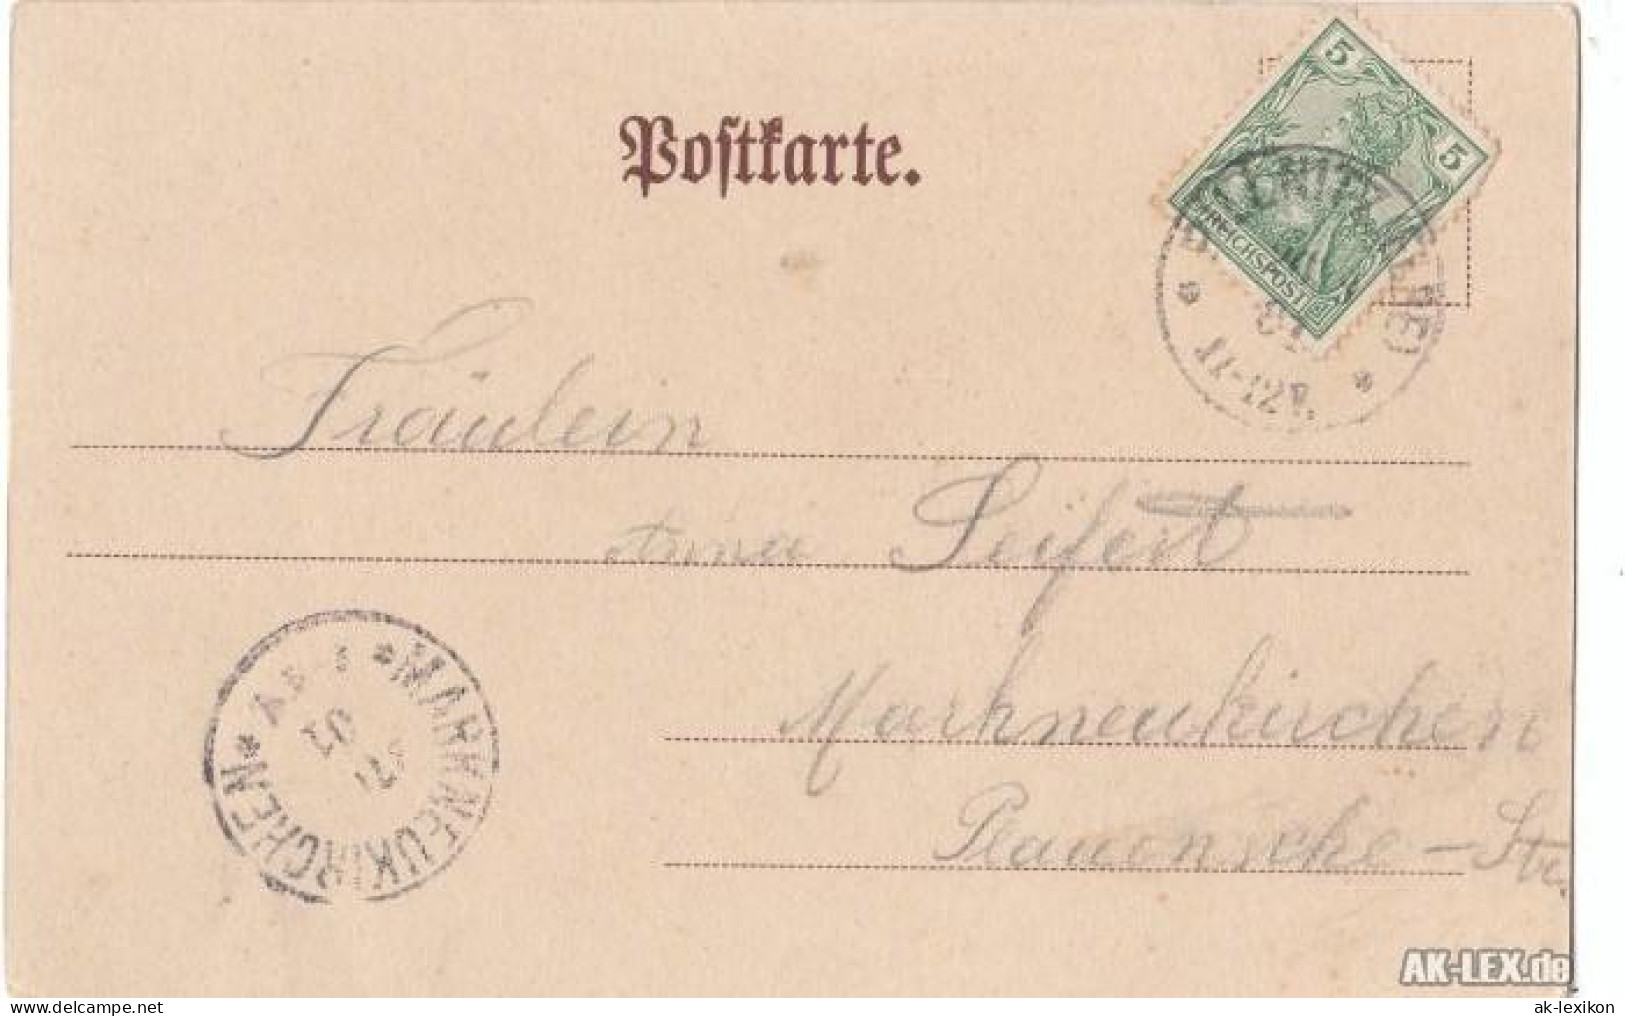 Postkarte.
5
5
REICHSPOST
11-12V.
Fräulein
Anna Seifert
Markneukirchen
Plauensche-Str.
*MARKNEUKIRCHEN*
01
AK-LEX.de
ak-lexikon